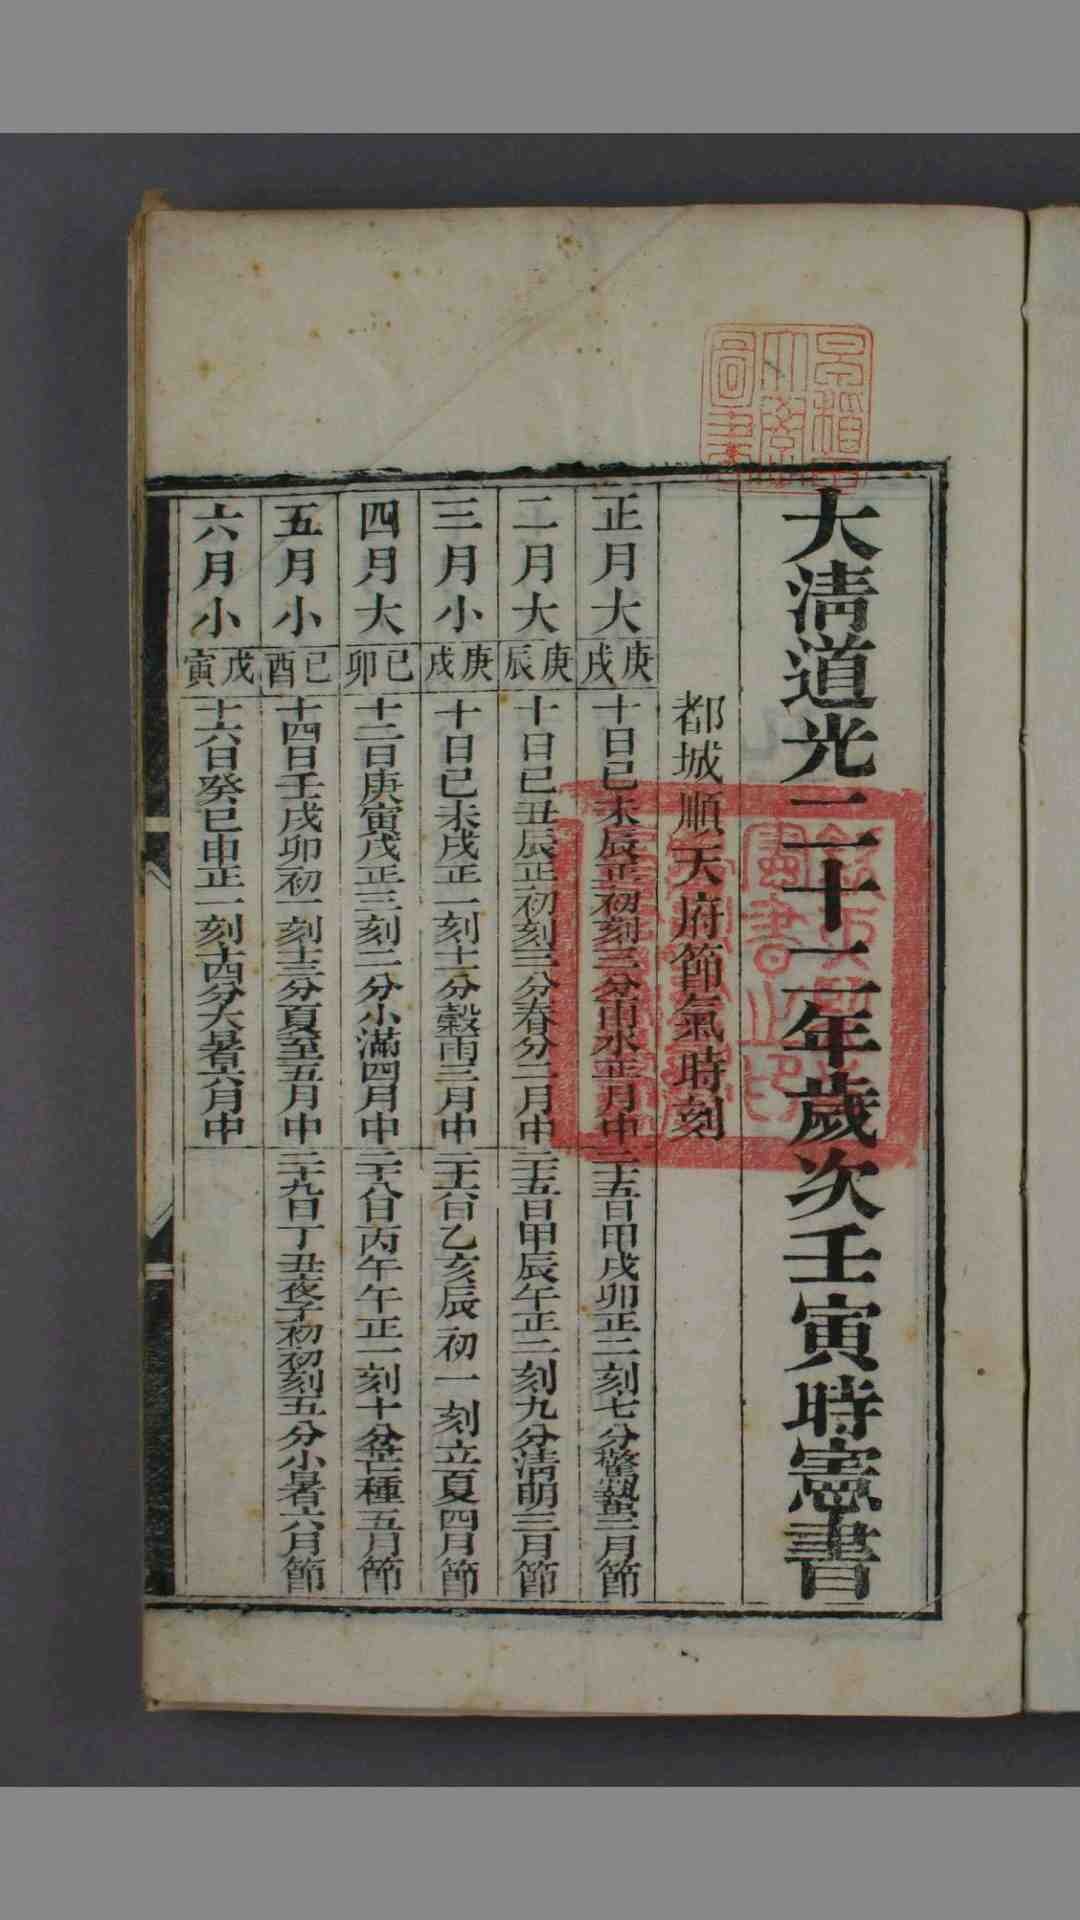 早稻田大學圖書
大清道光二十二年歲次壬寅時憲書
都城順天府節氣時刻
正月大 庚戌 十日己未辰正初刻三分雨水正月中 二十五日甲戌卯正二刻七分驚蟄二月節
二月大 庚辰 十日己丑辰正初刻三分春分二月中 二十五日甲辰午正二刻九分清明三月節
三月小 庚戌 十日己未戌正一刻十一分穀雨三月中 二十六日乙亥辰初一刻立夏四月節
四月大 己卯 十二日庚寅戌正三刻二分小滿四月中 二十八日丙午午正一刻十分芒種五月節
五月小 己酉 十四日壬戌卯初一刻十三分夏至五月中 二十九日丁丑夜子初初刻五分小暑六月節
六月小 戊寅 十六日癸巳申正一刻十四分大暑六月中